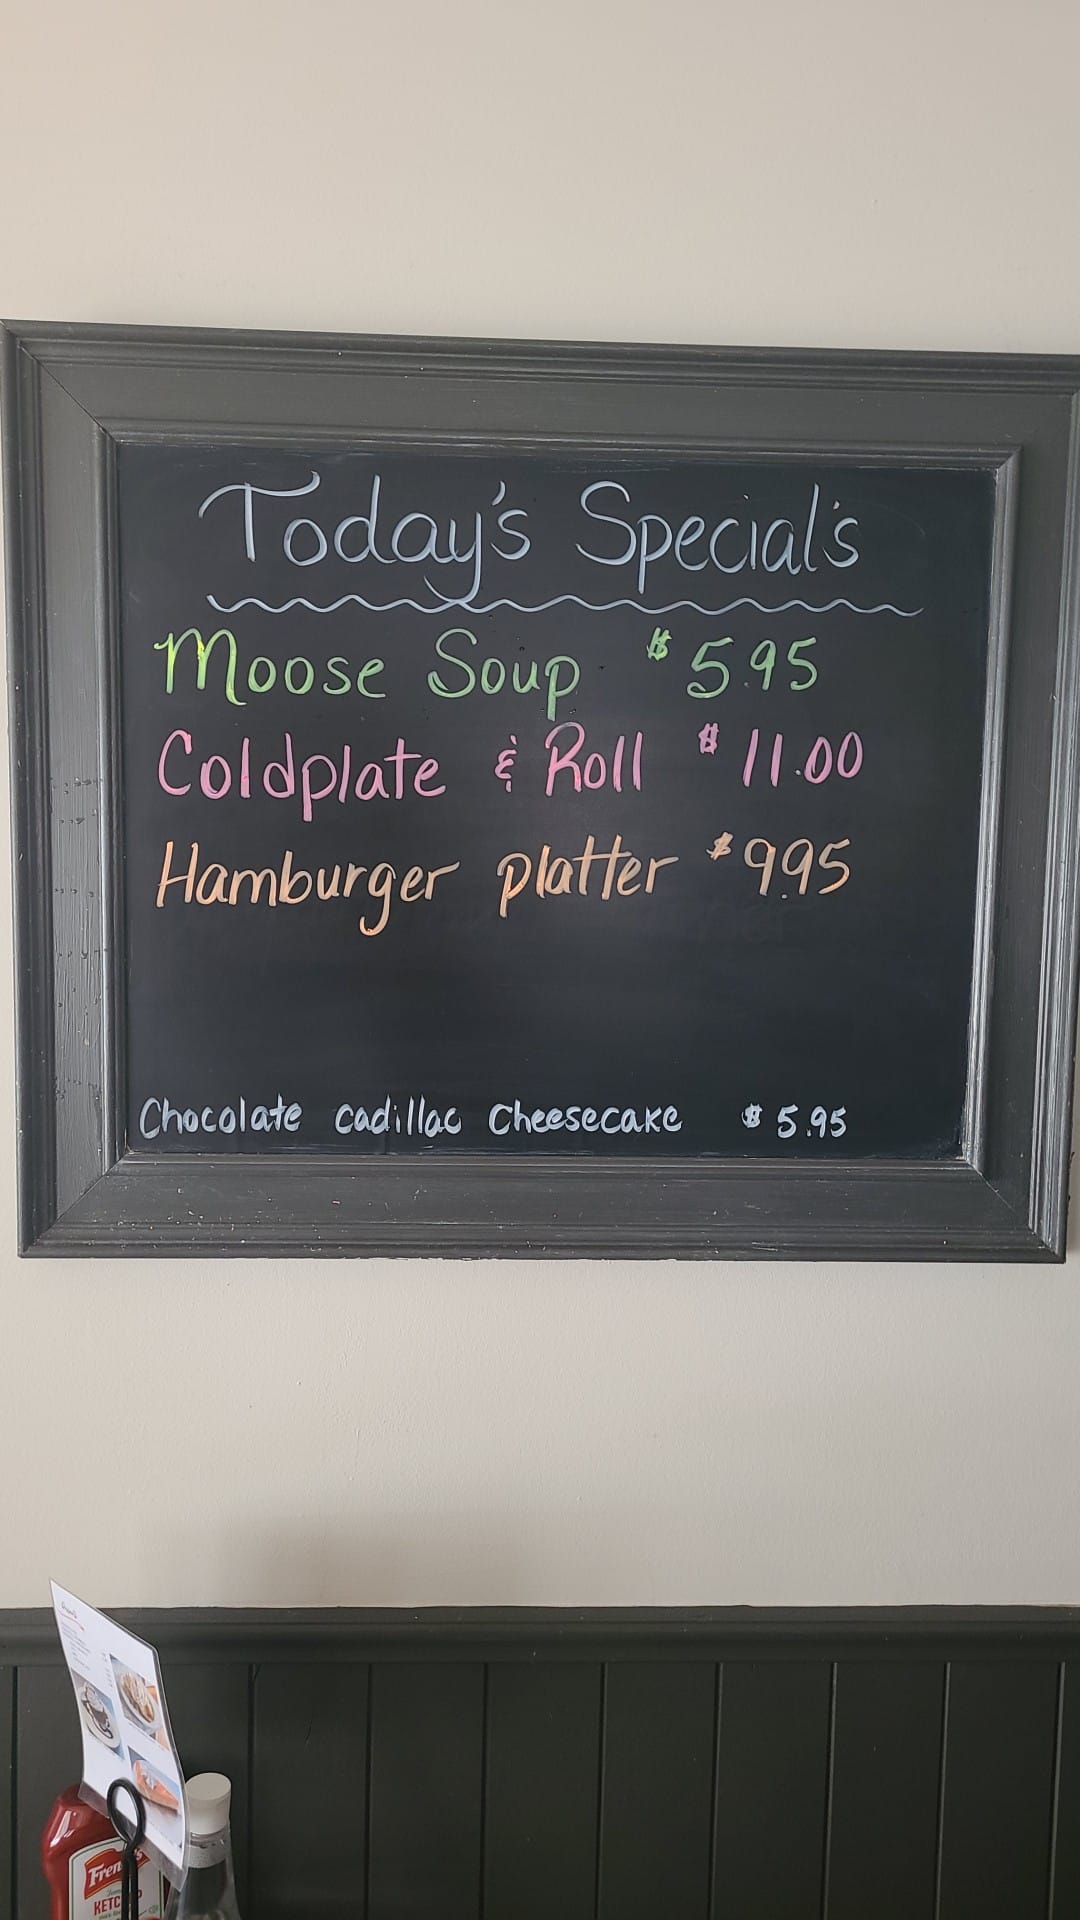 Today's Special's
Moose Soup $5.95
Coldplate & Roll $11.00
Hamburger platter $9.95
Chocolate Cadillac Cheesecake $5.95
French's